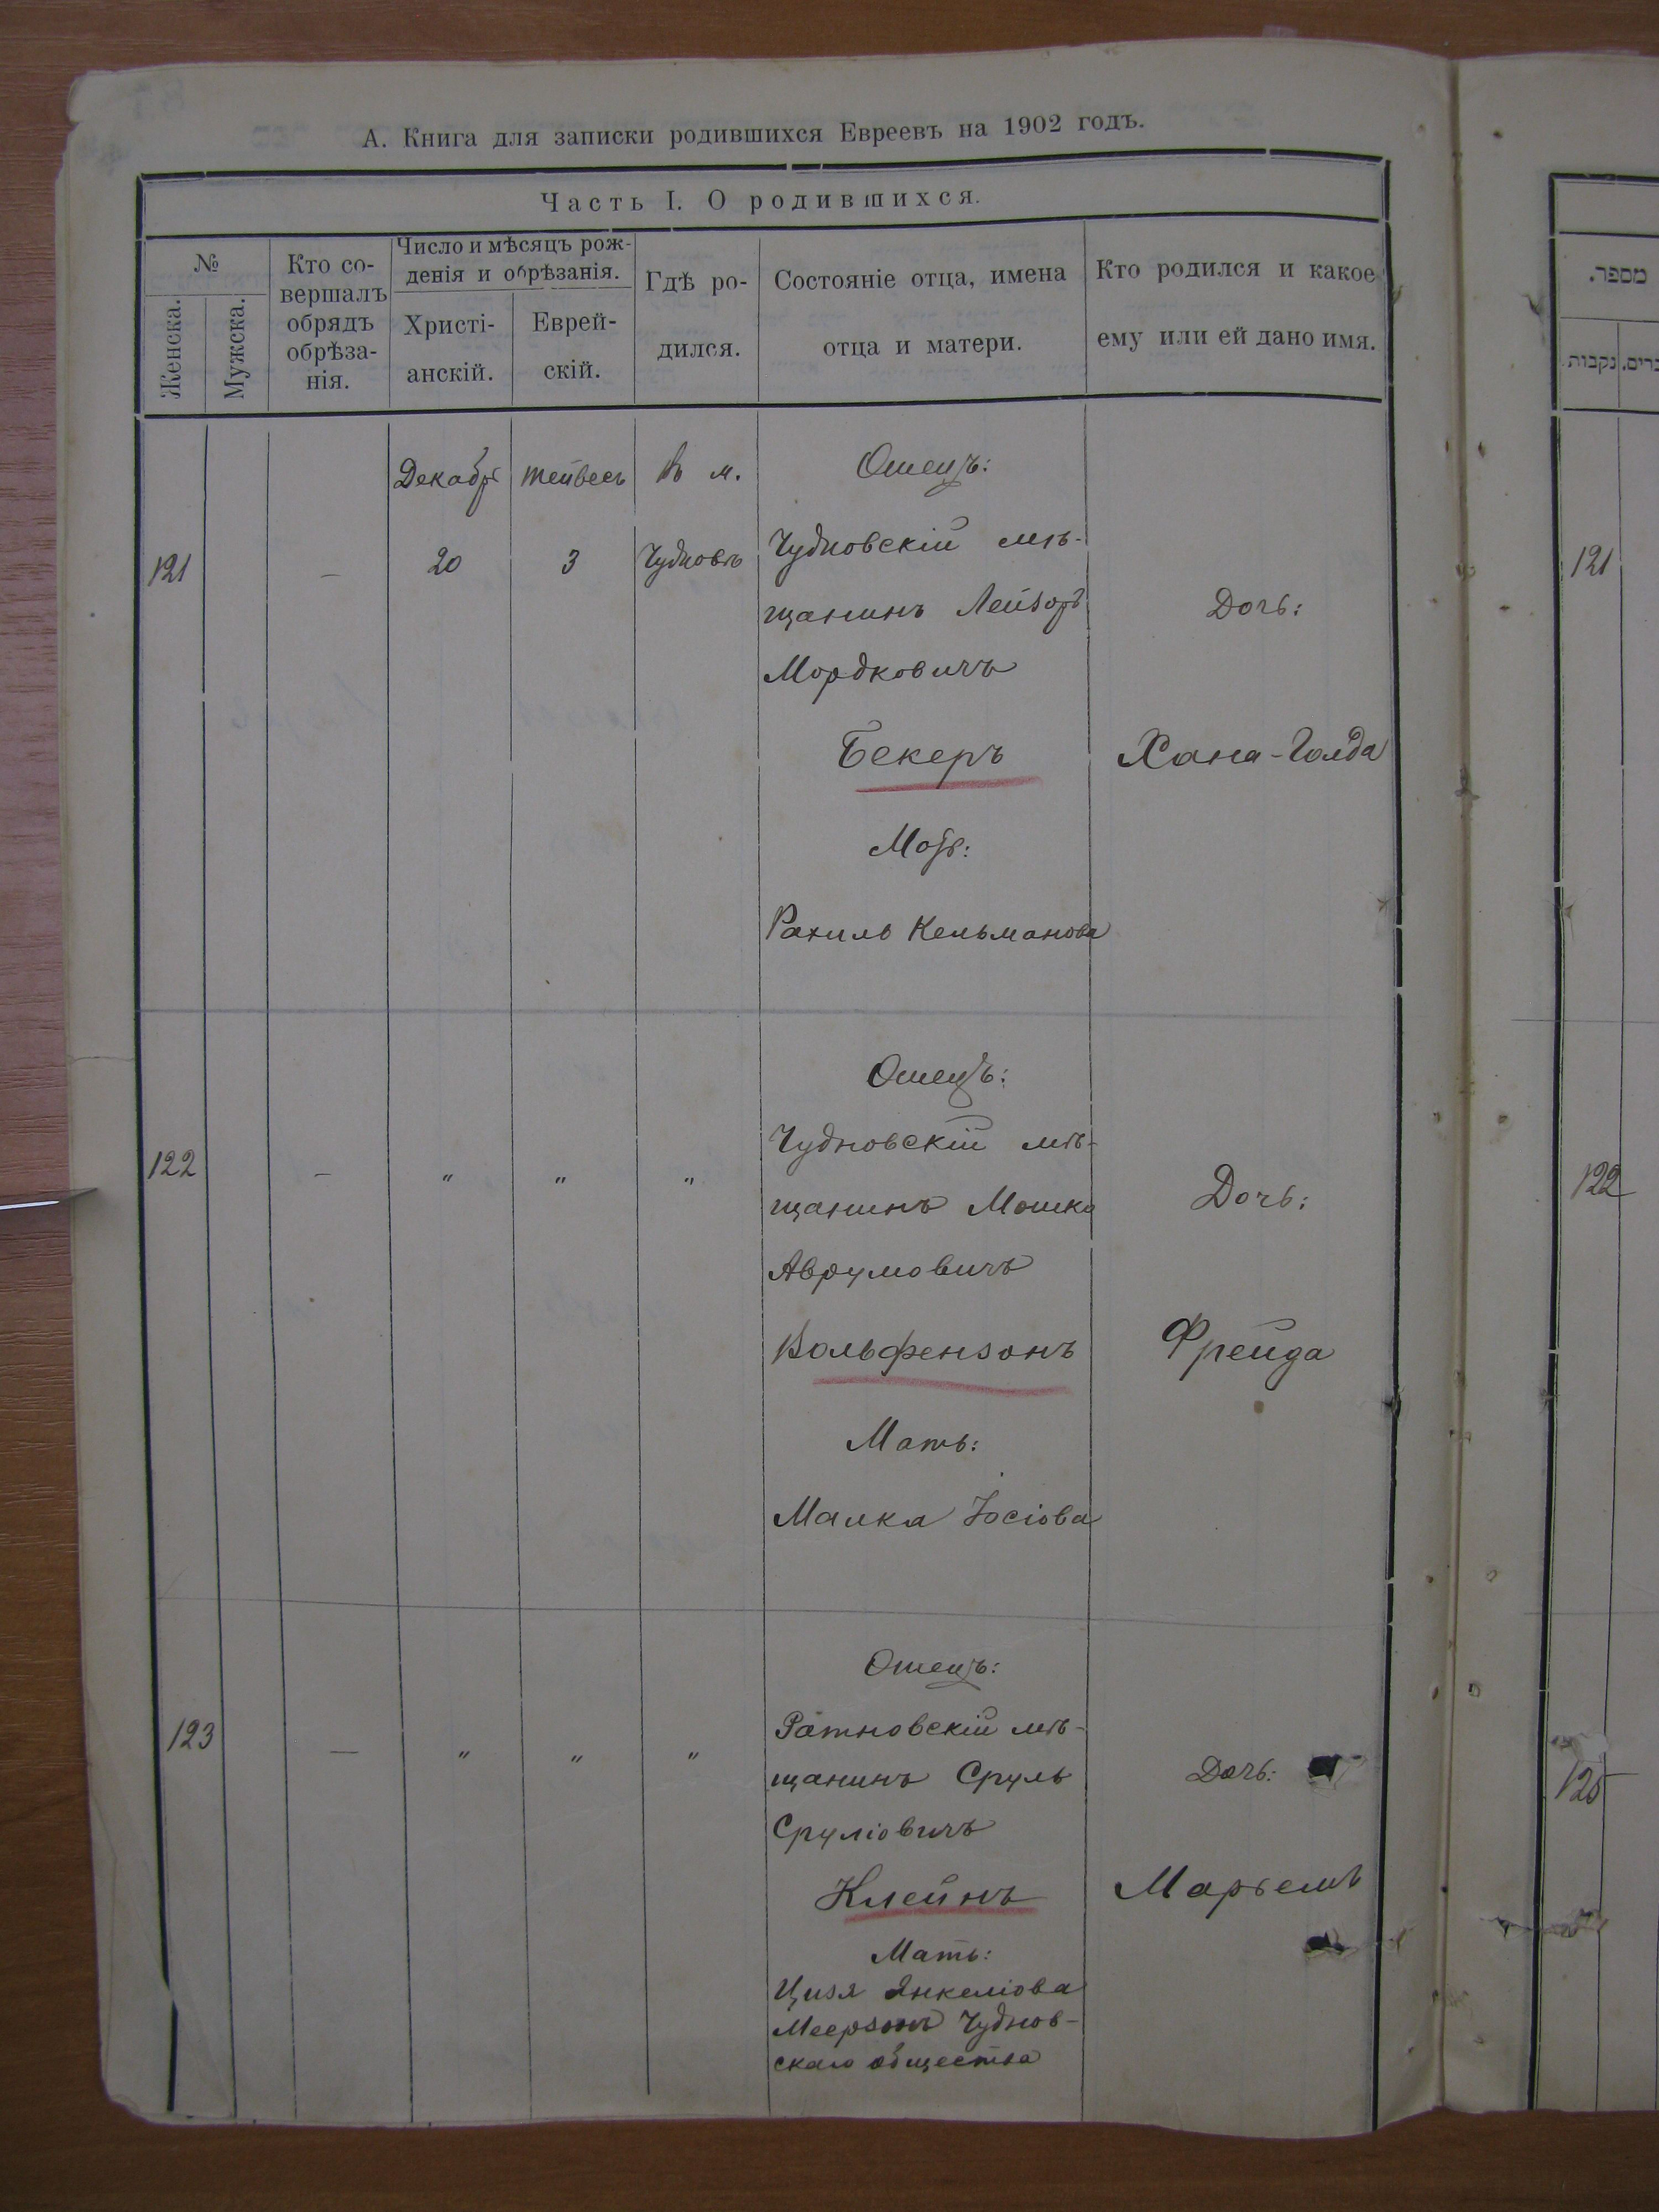 А. Книга для записки родившихся Евреевъ на 1902 годъ.
Часть I. О родившихся.
№
Женска.
Мужска.
Кто со-
вершалъ
обрядъ
обрѣза-
нія.
Число и мѣсяцъ рож-
денія и обрѣзанія.
Христі-
анскій.
Еврей-
скій.
Гдѣ ро-
дился.
Состояніе отца, имена
отца и матери.
Кто родился и какое
ему или ей дано имя.
Декабр Тейвесъ въ м.
121 — 20 3 Чудновъ
Отецъ:
Чудновскій мѣ-
щанинъ Лейзоръ
Мордковичъ
Бекеръ
Мать:
Рахиль Кельманова
Дочь:
Хана-Голда
122 — " " "
Отецъ:
Чудновскій мѣ-
щанинъ Мошко
Аврумовичъ
Вольфензонъ
Мать:
Малка Іосіова
Дочь:
Фрейда
123 — " " "
Отецъ:
Ратновскій мѣ-
щанинъ Сруль
Сруліовичъ
Клейнъ
Мать:
Цизя Янкеліова
Меерзонъ Чуднов-
скаго общества
Дочь:
Марьемъ
מספר.
נקבות.
121
122